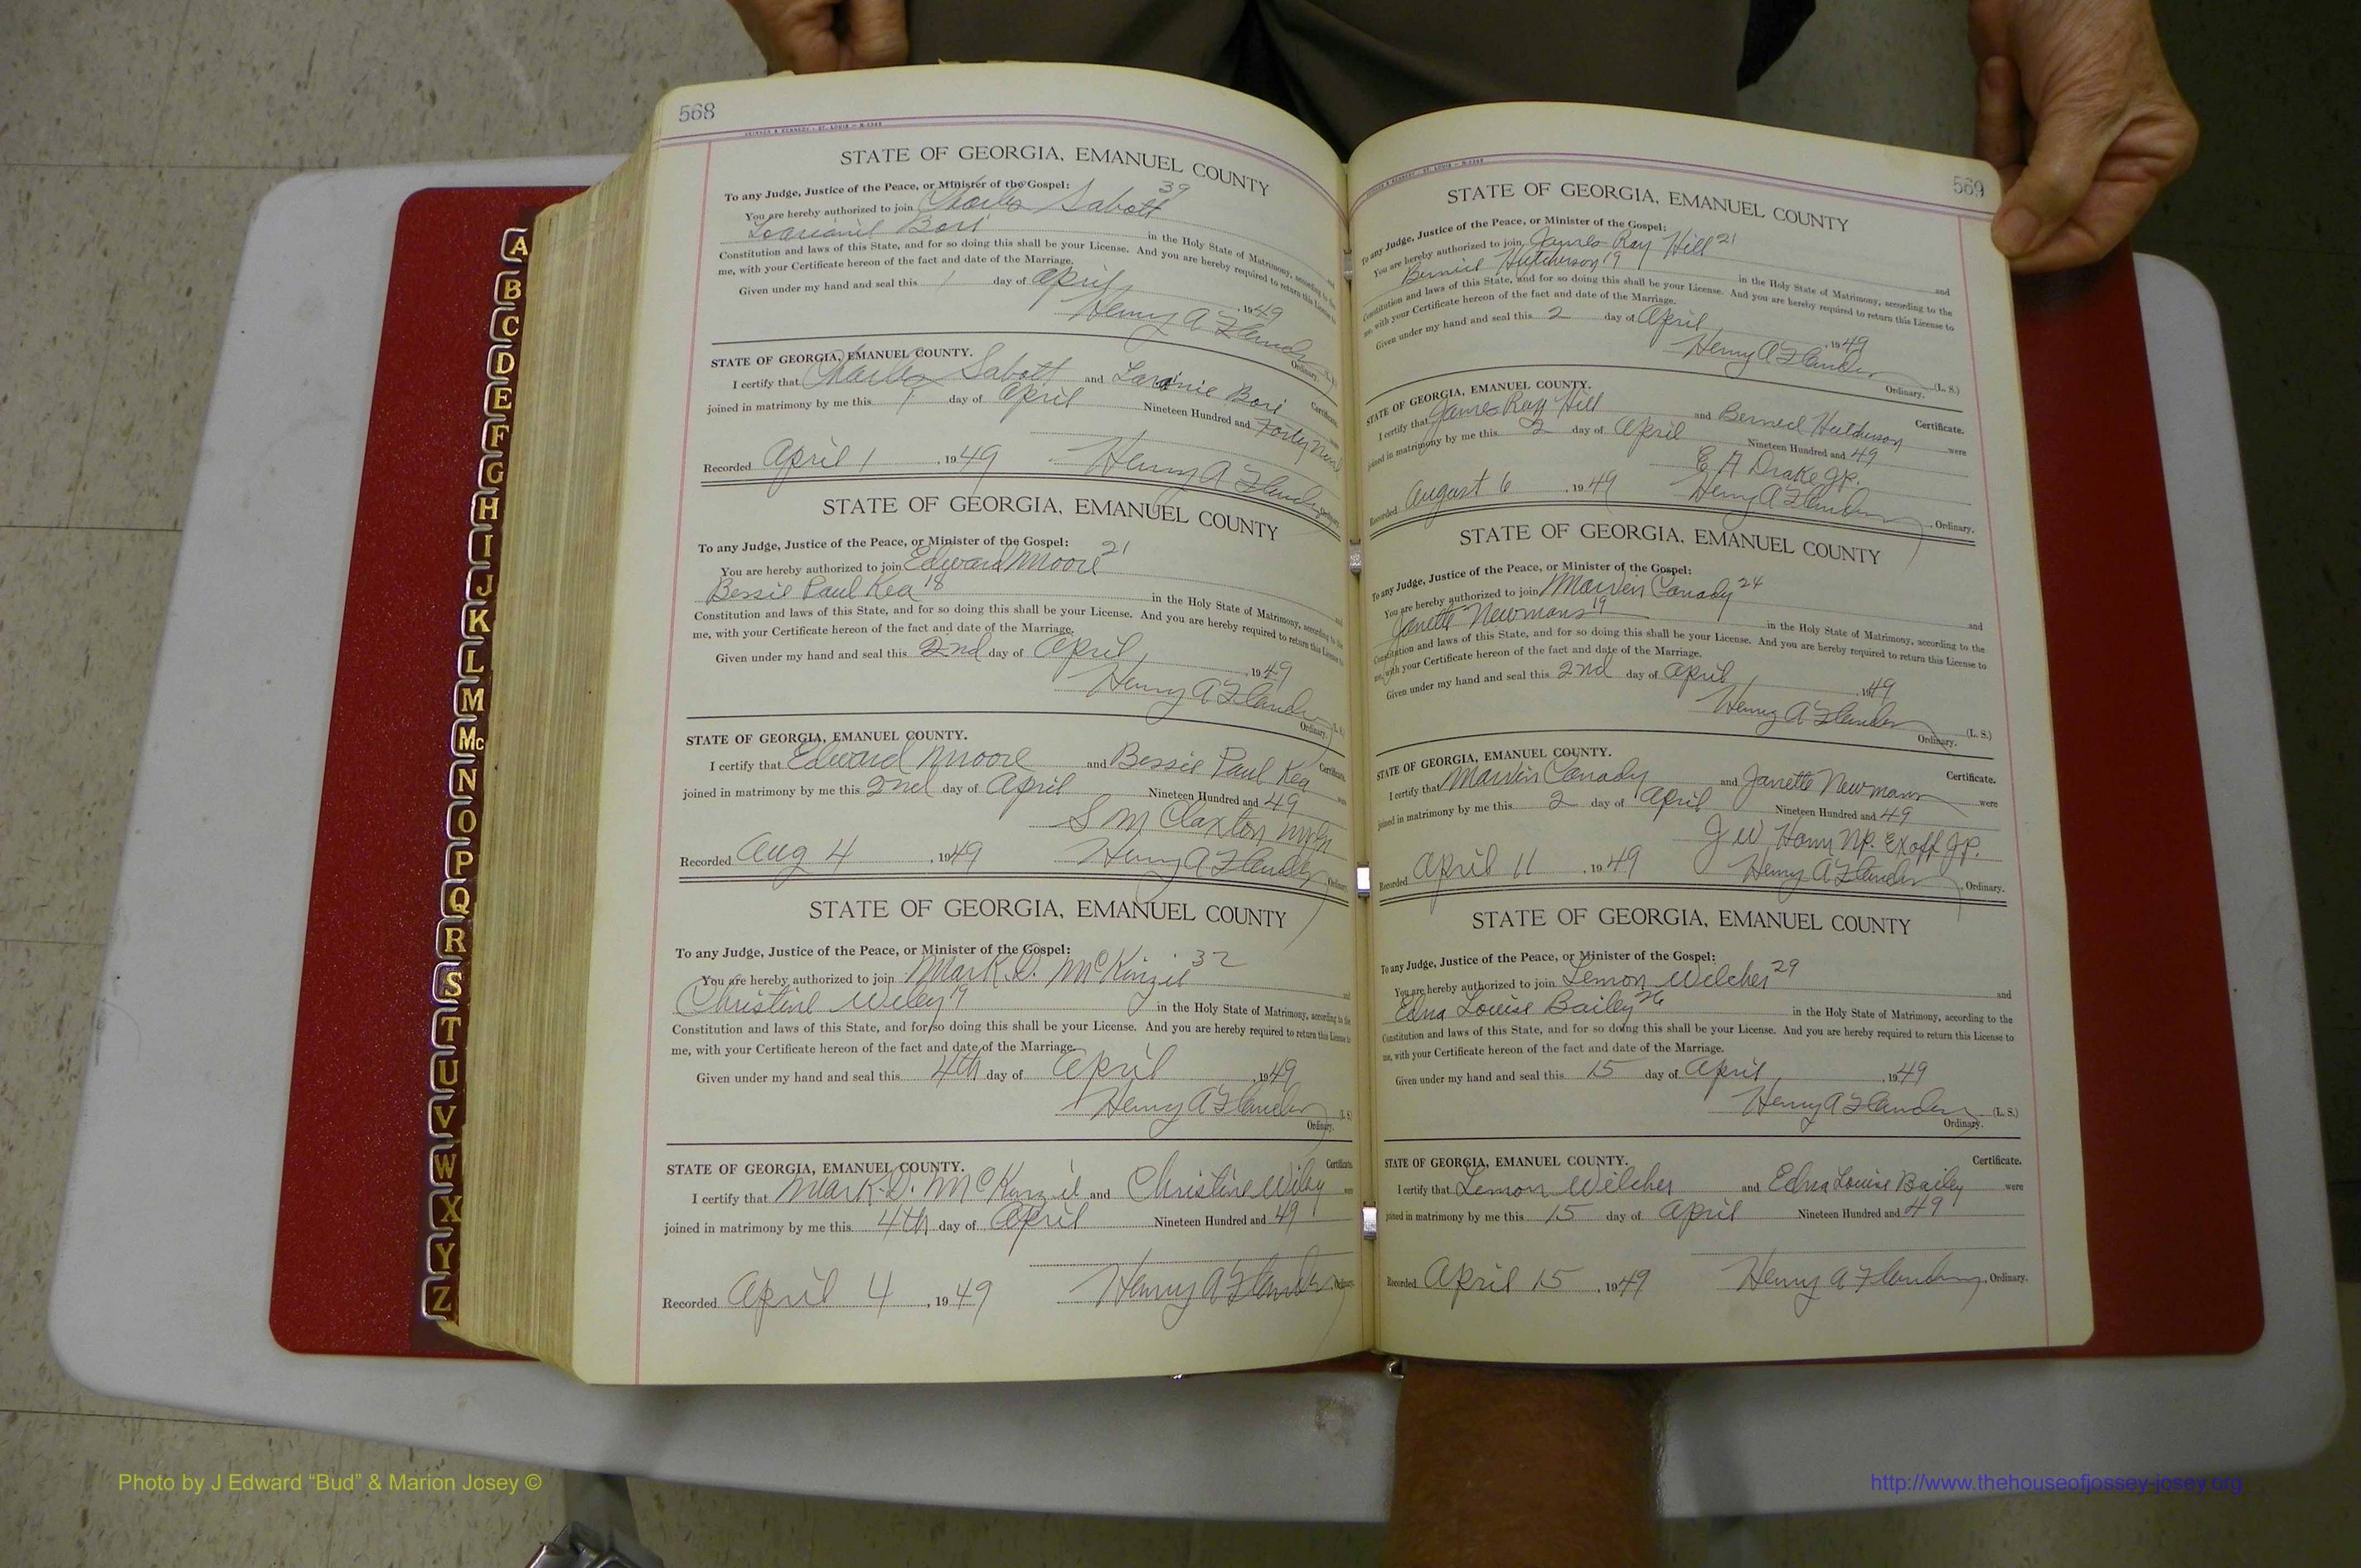 568
STATE OF GEORGIA, EMANUEL COUNTY
To any Judge, Justice of the Peace, or Minister of the Gospel:
You are hereby authorized to join Charles Sabott 39
Bori
in the Holy State of Matrimony, according to the
Constitution and laws of this State, and for so doing this shall be your License. And you are hereby required to return this License to
me, with your Certificate hereon of the fact and date of the Marriage.
Given under my hand and seal this 1 day of April, 1949
Henry A Flanders
Ordinary.
STATE OF GEORGIA, EMANUEL COUNTY.
Certificate.
I certify that Charles Sabott and Bori
joined in matrimony by me this 1 day of April Nineteen Hundred and Forty Nine
Recorded April 1, 1949 Henry A Flanders Ordinary.
STATE OF GEORGIA, EMANUEL COUNTY
To any Judge, Justice of the Peace, or Minister of the Gospel:
You are hereby authorized to join Edward Moore 21
Bessie Paul Kea 18 in the Holy State of Matrimony, according to the
Constitution and laws of this State, and for so doing this shall be your License. And you are hereby required to return this License to
me, with your Certificate hereon of the fact and date of the Marriage.
Given under my hand and seal this 2nd day of April, 1949
Henry A Flanders (L. S.)
Ordinary.
STATE OF GEORGIA, EMANUEL COUNTY.
Certificate.
I certify that Edward Moore and Bessie Paul Kea
joined in matrimony by me this 2nd day of April Nineteen Hundred and 49
S M Claxton
Recorded Aug 4, 1949 Henry A Flanders Ordinary.
STATE OF GEORGIA, EMANUEL COUNTY
To any Judge, Justice of the Peace, or Minister of the Gospel:
You are hereby authorized to join Mark D. McKinzie 32 and
Christine Wiley 19 in the Holy State of Matrimony, according to the
Constitution and laws of this State, and for so doing this shall be your License. And you are hereby required to return this License to
me, with your Certificate hereon of the fact and date of the Marriage.
Given under my hand and seal this 4th day of April, 1949
Henry A Flanders (L. S.)
Ordinary.
STATE OF GEORGIA, EMANUEL COUNTY.
Certificate.
I certify that Mark D. McKinzie and Christine Wiley were
joined in matrimony by me this 4th day of April Nineteen Hundred and 49
Recorded April 4, 1949 Henry A Flanders Ordinary.
569
STATE OF GEORGIA, EMANUEL COUNTY
To any Judge, Justice of the Peace, or Minister of the Gospel:
You are hereby authorized to join James Ray Hill 21 and
Berniel Hutcherson 19 in the Holy State of Matrimony, according to the
Constitution and laws of this State, and for so doing this shall be your License. And you are hereby required to return this License to
me, with your Certificate hereon of the fact and date of the Marriage.
Given under my hand and seal this 2 day of April, 1949
Henry A Flanders (L. S.)
Ordinary.
STATE OF GEORGIA, EMANUEL COUNTY.
Certificate.
I certify that James Ray Hill and Berniel Hutcherson were
joined in matrimony by me this 2 day of April Nineteen Hundred and 49
E A Drake J.P.
Recorded August 6, 1949 Henry A Flanders, Ordinary.
STATE OF GEORGIA, EMANUEL COUNTY
To any Judge, Justice of the Peace, or Minister of the Gospel:
You are hereby authorized to join Marvin Canady 24 and
Janette Newmans 19 in the Holy State of Matrimony, according to the
Constitution and laws of this State, and for so doing this shall be your License. And you are hereby required to return this License to
me, with your Certificate hereon of the fact and date of the Marriage.
Given under my hand and seal this 2nd day of April, 1949
Henry A Flanders (L. S.)
Ordinary.
STATE OF GEORGIA, EMANUEL COUNTY.
Certificate.
I certify that Marvin Canady and Janette Newmans were
joined in matrimony by me this 2 day of April Nineteen Hundred and 49
J W NP. Exoff J.P.
Recorded April 11, 1949 Henry A Flanders, Ordinary.
STATE OF GEORGIA, EMANUEL COUNTY
To any Judge, Justice of the Peace, or Minister of the Gospel:
You are hereby authorized to join Lemon Welcher 29 and
Edna Louise Bailey 26 in the Holy State of Matrimony, according to the
Constitution and laws of this State, and for so doing this shall be your License. And you are hereby required to return this License to
me, with your Certificate hereon of the fact and date of the Marriage.
Given under my hand and seal this 15 day of April, 1949
Henry A Flanders (L. S.)
Ordinary.
STATE OF GEORGIA, EMANUEL COUNTY.
Certificate.
I certify that Lemon Welcher and Edna Louise Bailey were
joined in matrimony by me this 15 day of April Nineteen Hundred and 49
Recorded April 15, 1949 Henry A Flanders, Ordinary.
A
B
C
D
E
F
G
H
I
J
K
L
M
Mc
N
O
P
Q
R
S
T
U
V
W
X
Y
Z
Photo by J Edward “Bud” & Marion Josey ©
http://www.thehouseofjossey-josey.org